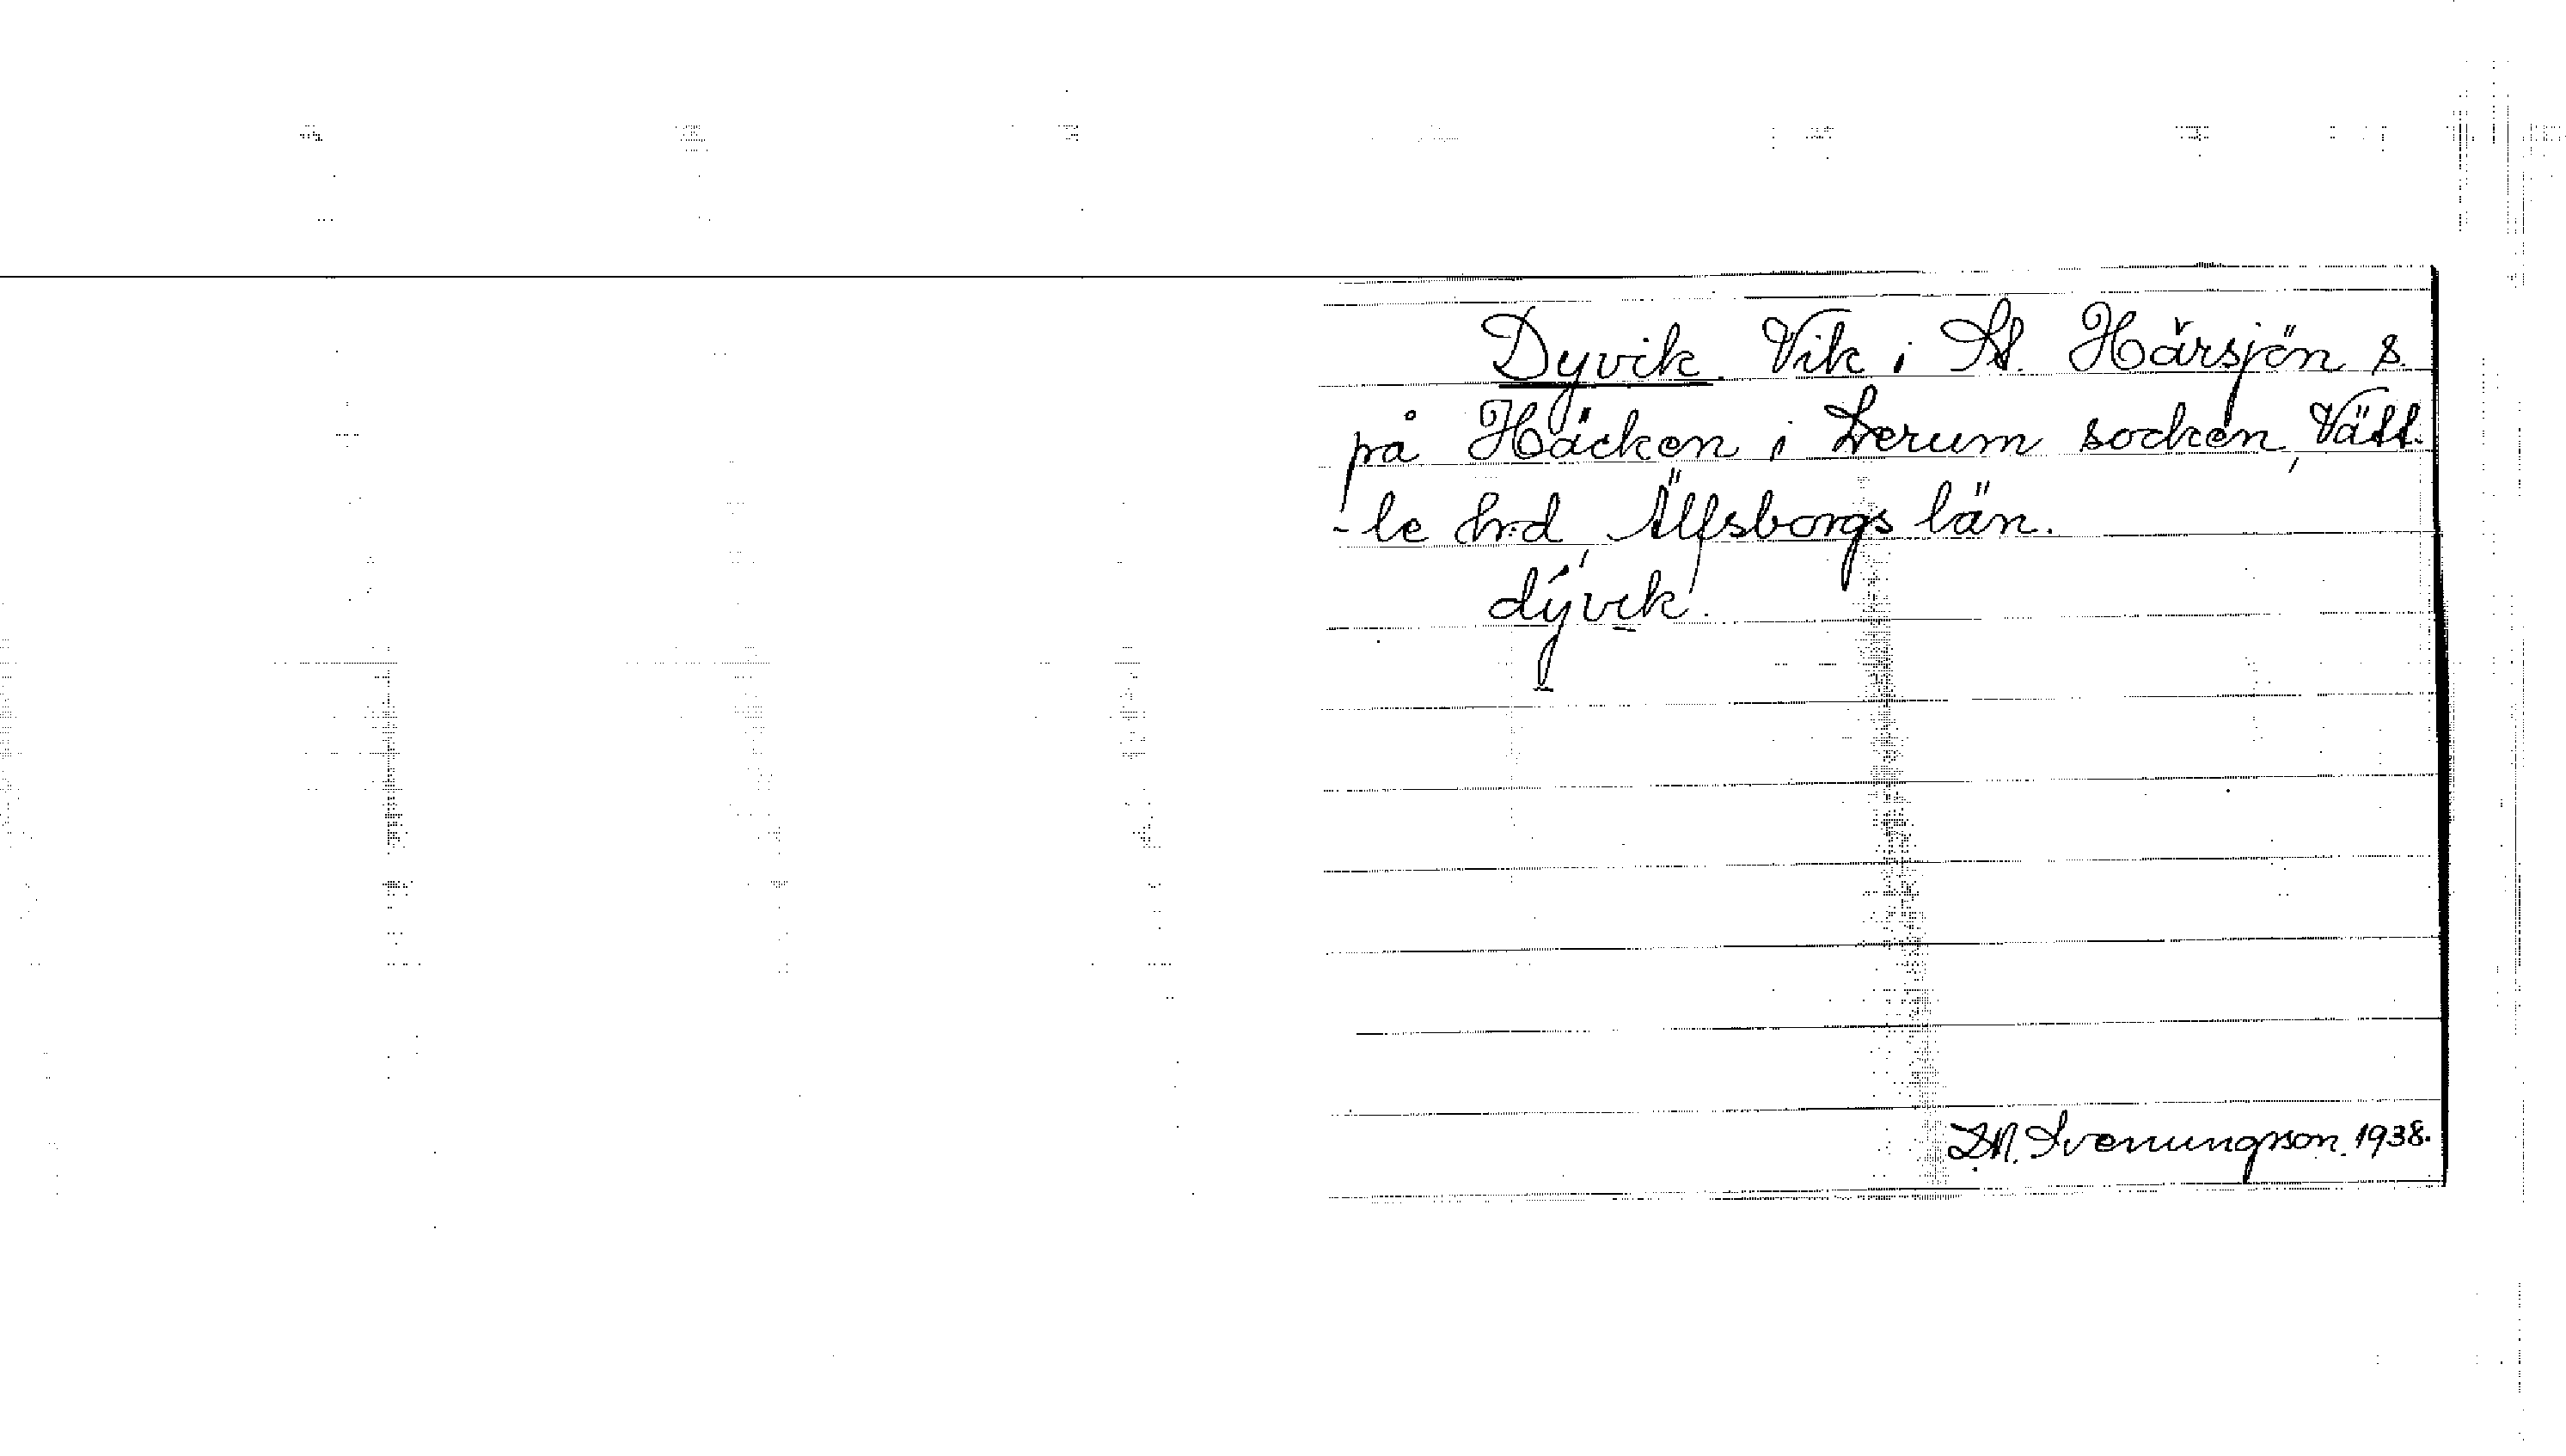 Dyvik. Vik i St. Härsjön s.
på Häcken i Lerum socken, Vätt-
-le hrd, Älfsborgs län.
dývik.
S.M. Svenungsson. 1938.